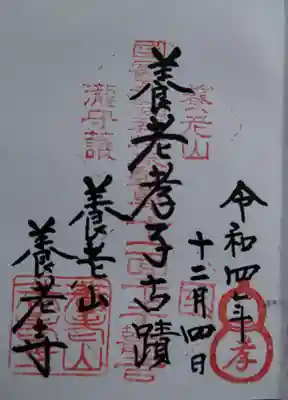 令和四年
十二月四日
孝
養老山
養老孝子古蹟
瀧守護
養老山
養老寺